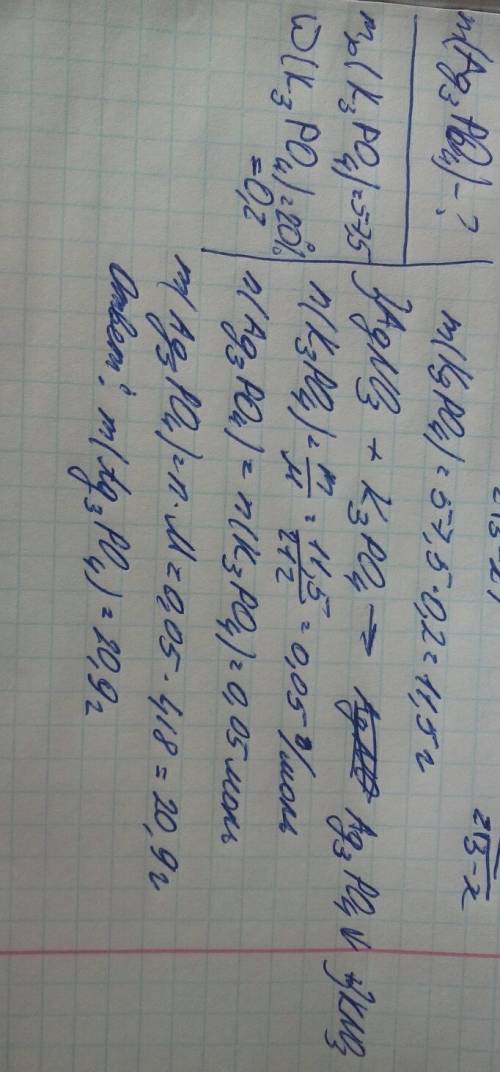 m(Ag₃PO₄) - ?
mр(K₃PO₄) = 57,5
ω(K₃PO₄) = 20%
= 0,2
m(K₃PO₄) = 57,5 · 0,2 = 11,5 г
3AgNO₃ + K₃PO₄ → Ag₃PO₄↓ + 3KNO₃
n(K₃PO₄) = m/M = 11,5/212 = 0,05 г/моль
n(Ag₃PO₄) = n(K₃PO₄) = 0,05 моль
m(Ag₃PO₄) = n · M = 0,05 · 418 = 20,9 г
Ответ: m(Ag₃PO₄) = 20,9 г